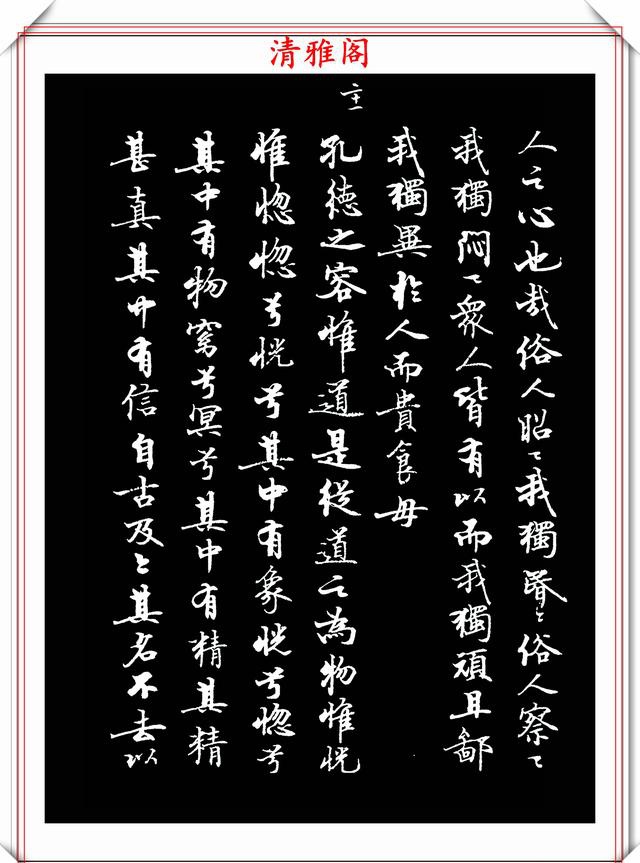 清雅阁
人之心也哉俗人昭〻我獨昬〻俗人察〻
我獨悶〻衆人皆有以而我獨頑且鄙
我獨異於人而貴食母
孔徳之容惟道是從道之為物惟恍
惟惚惚兮恍兮其中有象恍兮惚兮
其中有物窈兮冥兮其中有精其精
甚真其中有信自古及今其名不去以